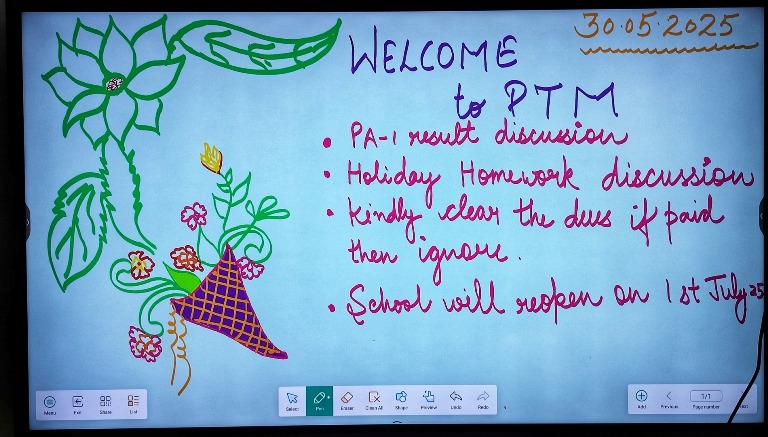 30.05.2025
WELCOME
to PTM
• PA-1 result discussion
• Holiday Homework discussion
• Kindly clear the dues if paid
then ignore.
• School will reopen on 1st July 25
Menu Exit Share List
Select Pen Eraser Clean All Shape Preview Undo Redo
Add Previous 1/1 Page number